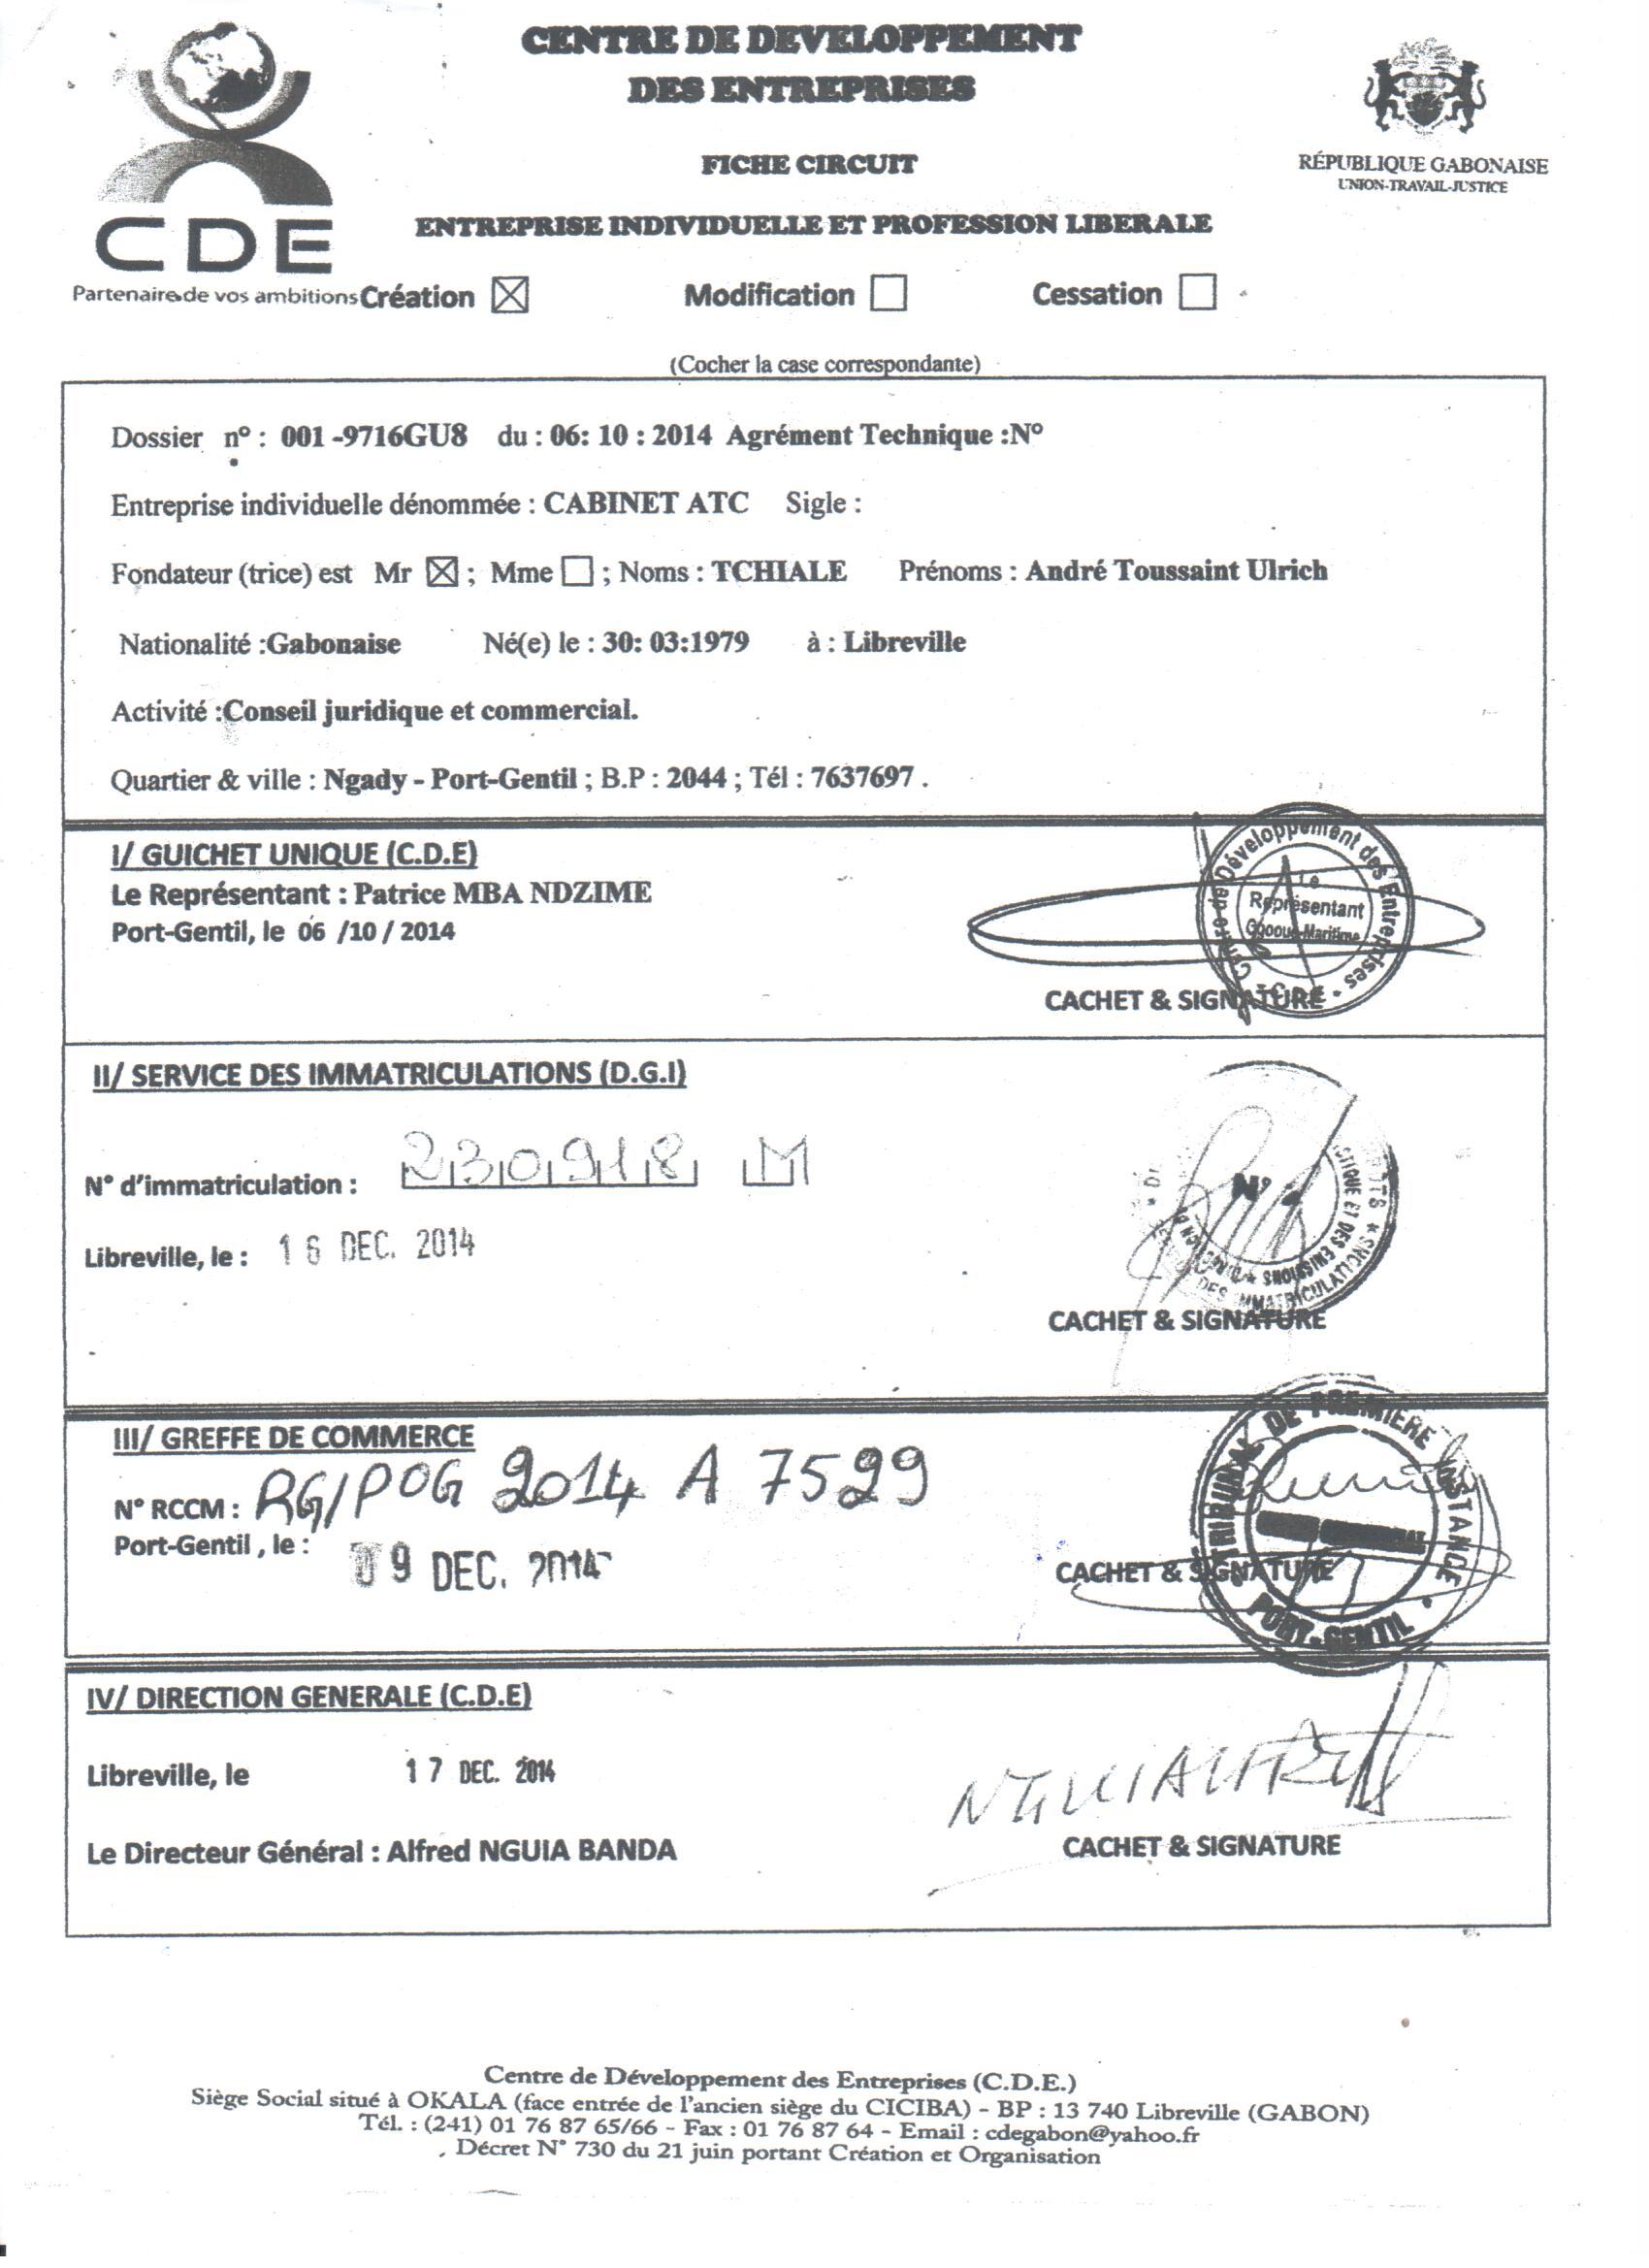 CENTRE DE DEVELOPPEMENT
DES ENTREPRISES
FICHE CIRCUIT
RÉPUBLIQUE GABONAISE
UNION-TRAVAIL-JUSTICE
ENTREPRISE INDIVIDUELLE ET PROFESSION LIBERALE
CDE
Partenaire de vos ambitions
Création ☒ Modification ☐ Cessation ☐
(Cocher la case correspondante)
Dossier n° : 001 -9716GU8 du : 06: 10 : 2014 Agrément Technique :N°
Entreprise individuelle dénommée : CABINET ATC Sigle :
Fondateur (trice) est Mr ☒ ; Mme ☐ ; Noms : TCHIALE Prénoms : André Toussaint Ulrich
Nationalité :Gabonaise Né(e) le : 30: 03:1979 à : Libreville
Activité :Conseil juridique et commercial.
Quartier & ville : Ngady - Port-Gentil ; B.P : 2044 ; Tél : 7637697 .
I/ GUICHET UNIQUE (C.D.E)
Le Représentant : Patrice MBA NDZIME
Port-Gentil, le 06 /10 / 2014
Centre de Développement des Entreprises - C.D.E
Le
Représentant
Ogooué-Maritime
CACHET & SIGNATURE
II/ SERVICE DES IMMATRICULATIONS (D.G.I)
N° d'immatriculation : 230918 M
Libreville, le : 16 DEC. 2014
DES IMMATRICULATIONS
CACHET & SIGNATURE
III/ GREFFE DE COMMERCE
N° RCCM : RG/POG 2014 A 7529
Port-Gentil , le : 09 DEC. 2014
TRIBUNAL DE PREMIERE INSTANCE
PORT-GENTIL
CACHET & SIGNATURE
IV/ DIRECTION GENERALE (C.D.E)
Libreville, le 17 DEC. 2014
Le Directeur Général : Alfred NGUIA BANDA
CACHET & SIGNATURE
Centre de Développement des Entreprises (C.D.E.)
Siège Social situé à OKALA (face entrée de l'ancien siège du CICIBA) - BP : 13 740 Libreville (GABON)
Tél. : (241) 01 76 87 65/66 - Fax : 01 76 87 64 - Email : cdegabon@yahoo.fr
Décret N° 730 du 21 juin portant Création et Organisation